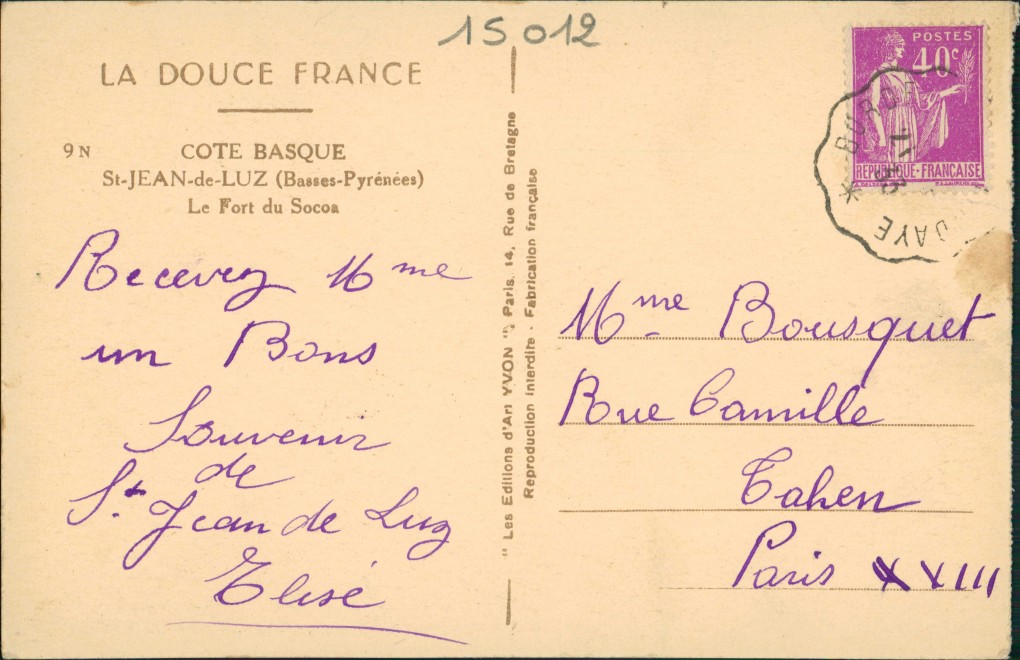 15012
LA DOUCE FRANCE
9 N
COTE BASQUE
St-JEAN-de-LUZ (Basses-Pyrénées)
Le Fort du Socoa
Recevez Mme
un Bons
Souvenir
de
St Jean de Luz
Elisé
" Les Editions d'Art YVON ", Paris, 14, Rue de Bretagne
Reproduction interdite - Fabrication française
POSTES
40c
RÉPUBLIQUE-FRANÇAISE
Mme Bousquet
Rue Camille
Tahen
Paris XXIII